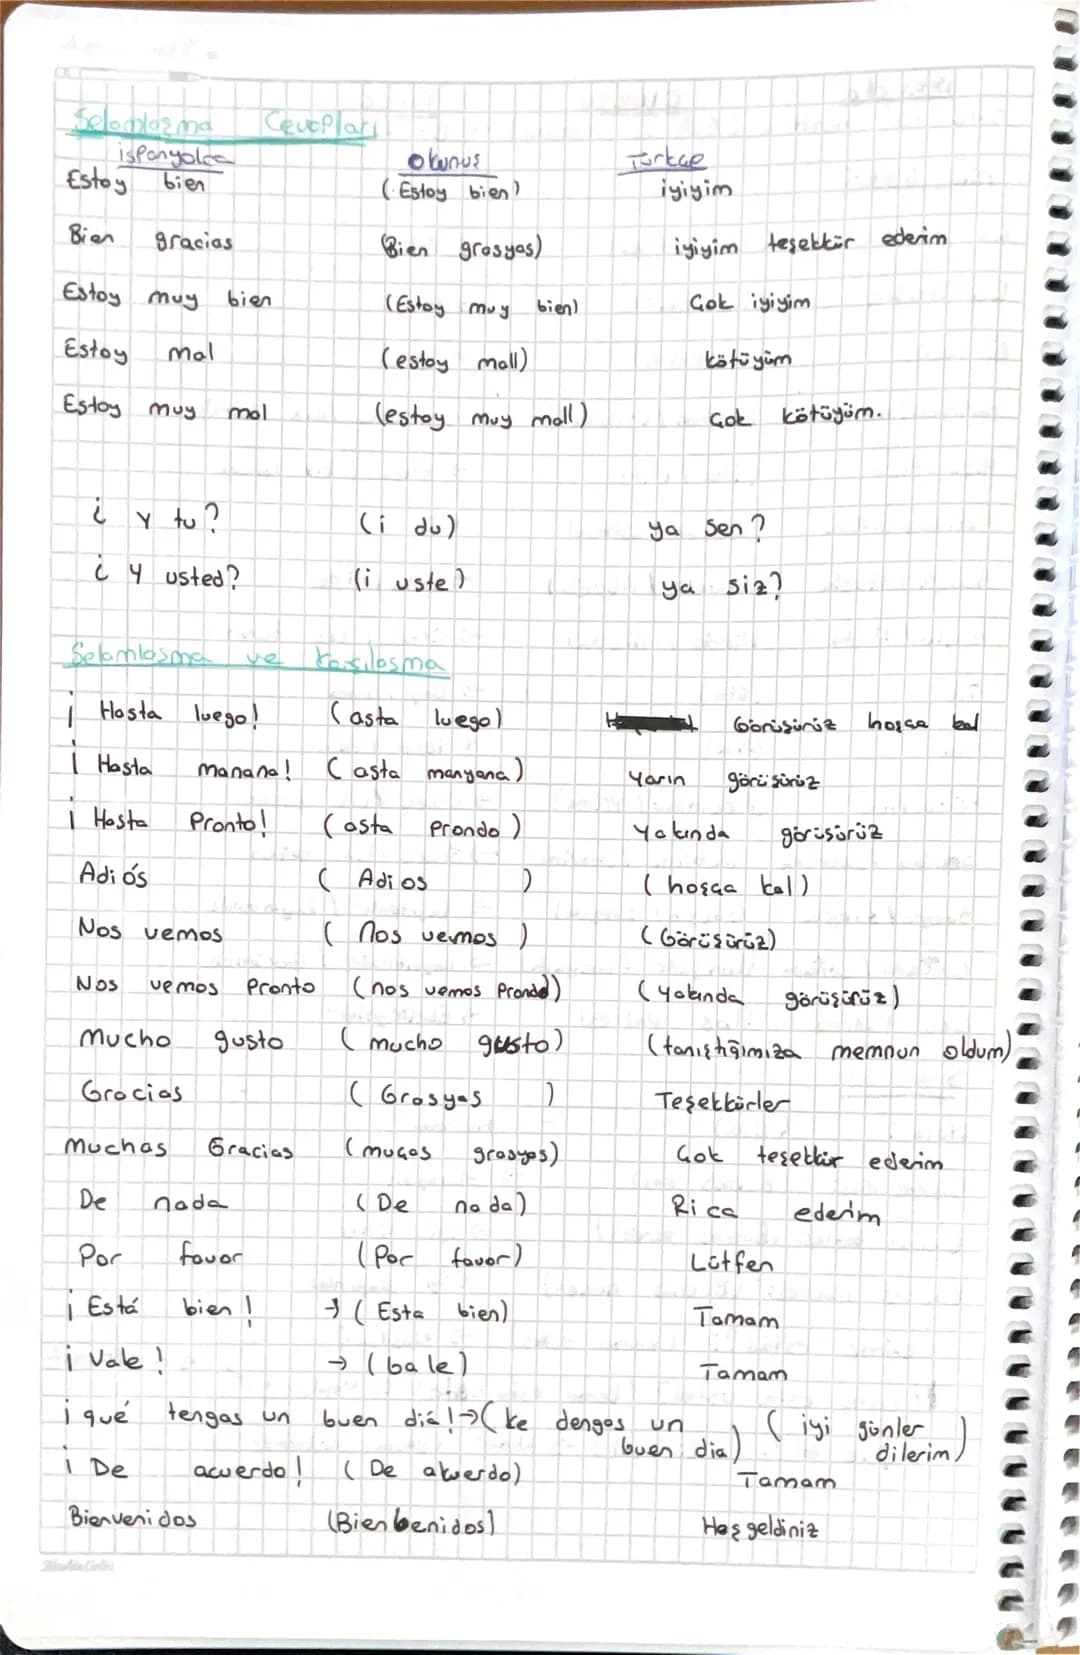 Selamlaşma Cevapları
ispanyolca okunuş Türkçe
Estoy bien (Estoy bien) iyiyim
Bien gracias (Bien grasyas) iyiyim teşekkür ederim
Estoy muy bien (Estoy muy bien) Çok iyiyim
Estoy mal (estoy mall) kötüyüm
Estoy muy mal (estoy muy mall) Çok kötüyüm.
¿ y tu? (i du) ya sen?
¿ y usted? (i uste) ya siz?
Selamlaşma ve karşılaşma
¡ Hasta luego! (asta luego) Görüşürüz hoşça kal
¡ Hasta manana! (asta manyana) Yarın görüşürüz
¡ Hasta Pronto! (asta Prondo) Yakında görüşürüz
Adiós (Adios) (hoşça kal)
Nos vemos (nos vemos) (Görüşürüz)
Nos vemos Pronto (nos vemos Prondo) (yakında görüşürüz)
Mucho gusto (mucho gusto) (tanıştığımıza memnun oldum)
Gracias (Grasyas) Teşekkürler
Muchas Gracias (muças grasyas) Çok teşekkür ederim
De nada (De nada) Rica ederim
Por favor (Por favor) Lütfen
¡ Está bien! → (Esta bien) Tamam
¡ Vale! → (bale) Tamam
¡ qué tengas un buen diá! → (ke dengas un buen dia) (iyi günler dilerim)
¡ De acuerdo! (De akuerdo) Tamam
Bienvenidos (Bienbenidos) Hoş geldiniz